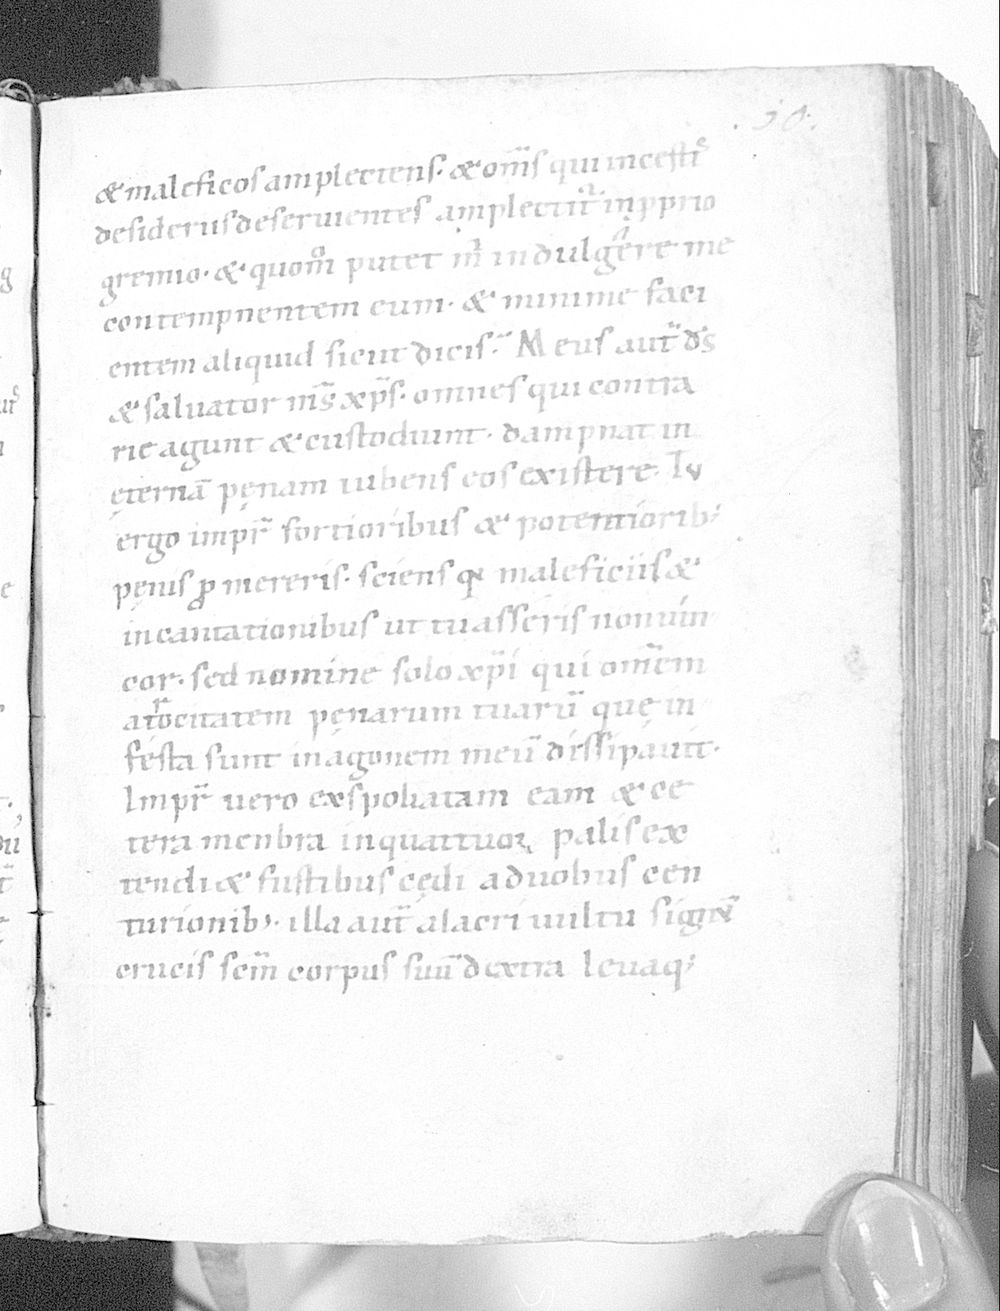 .50.
& maleficos amplectens. & om̅s qui incesti᷒
desideriis deseruientes amplectit᷑ in pprio
gremio. & quom̊ putet m̅ indulgere me
contempnentem eum. & minime faci
entem aliquid sicut dicis. Meus aut̅ ds̅
& saluator m̅s xp̅s. omnes qui contra
rie agunt & custodiunt. dampnat in
ęternā pęnam iubens eos existere. Tu
ergo impr̅ fortioribus & potentiorib;
penis ꝓ mereris. sciens qͥ maleficiis &
incantationibus ut tu asseris non uin
cor. sed nomine solo xp̅i qui om̅em
atrocitatem pęnarum tuarū quę in
festa sunt in agonem meū dissipauit.
Impr̅ uero exspoliatam eam & ce
tera menbra in quattuor palis ex
tendi & fustibus cędi a duobus cen
turionib;. illa aut̅ alacri uultu signū
crucis sem̅ corpus suū dextra leuaq;